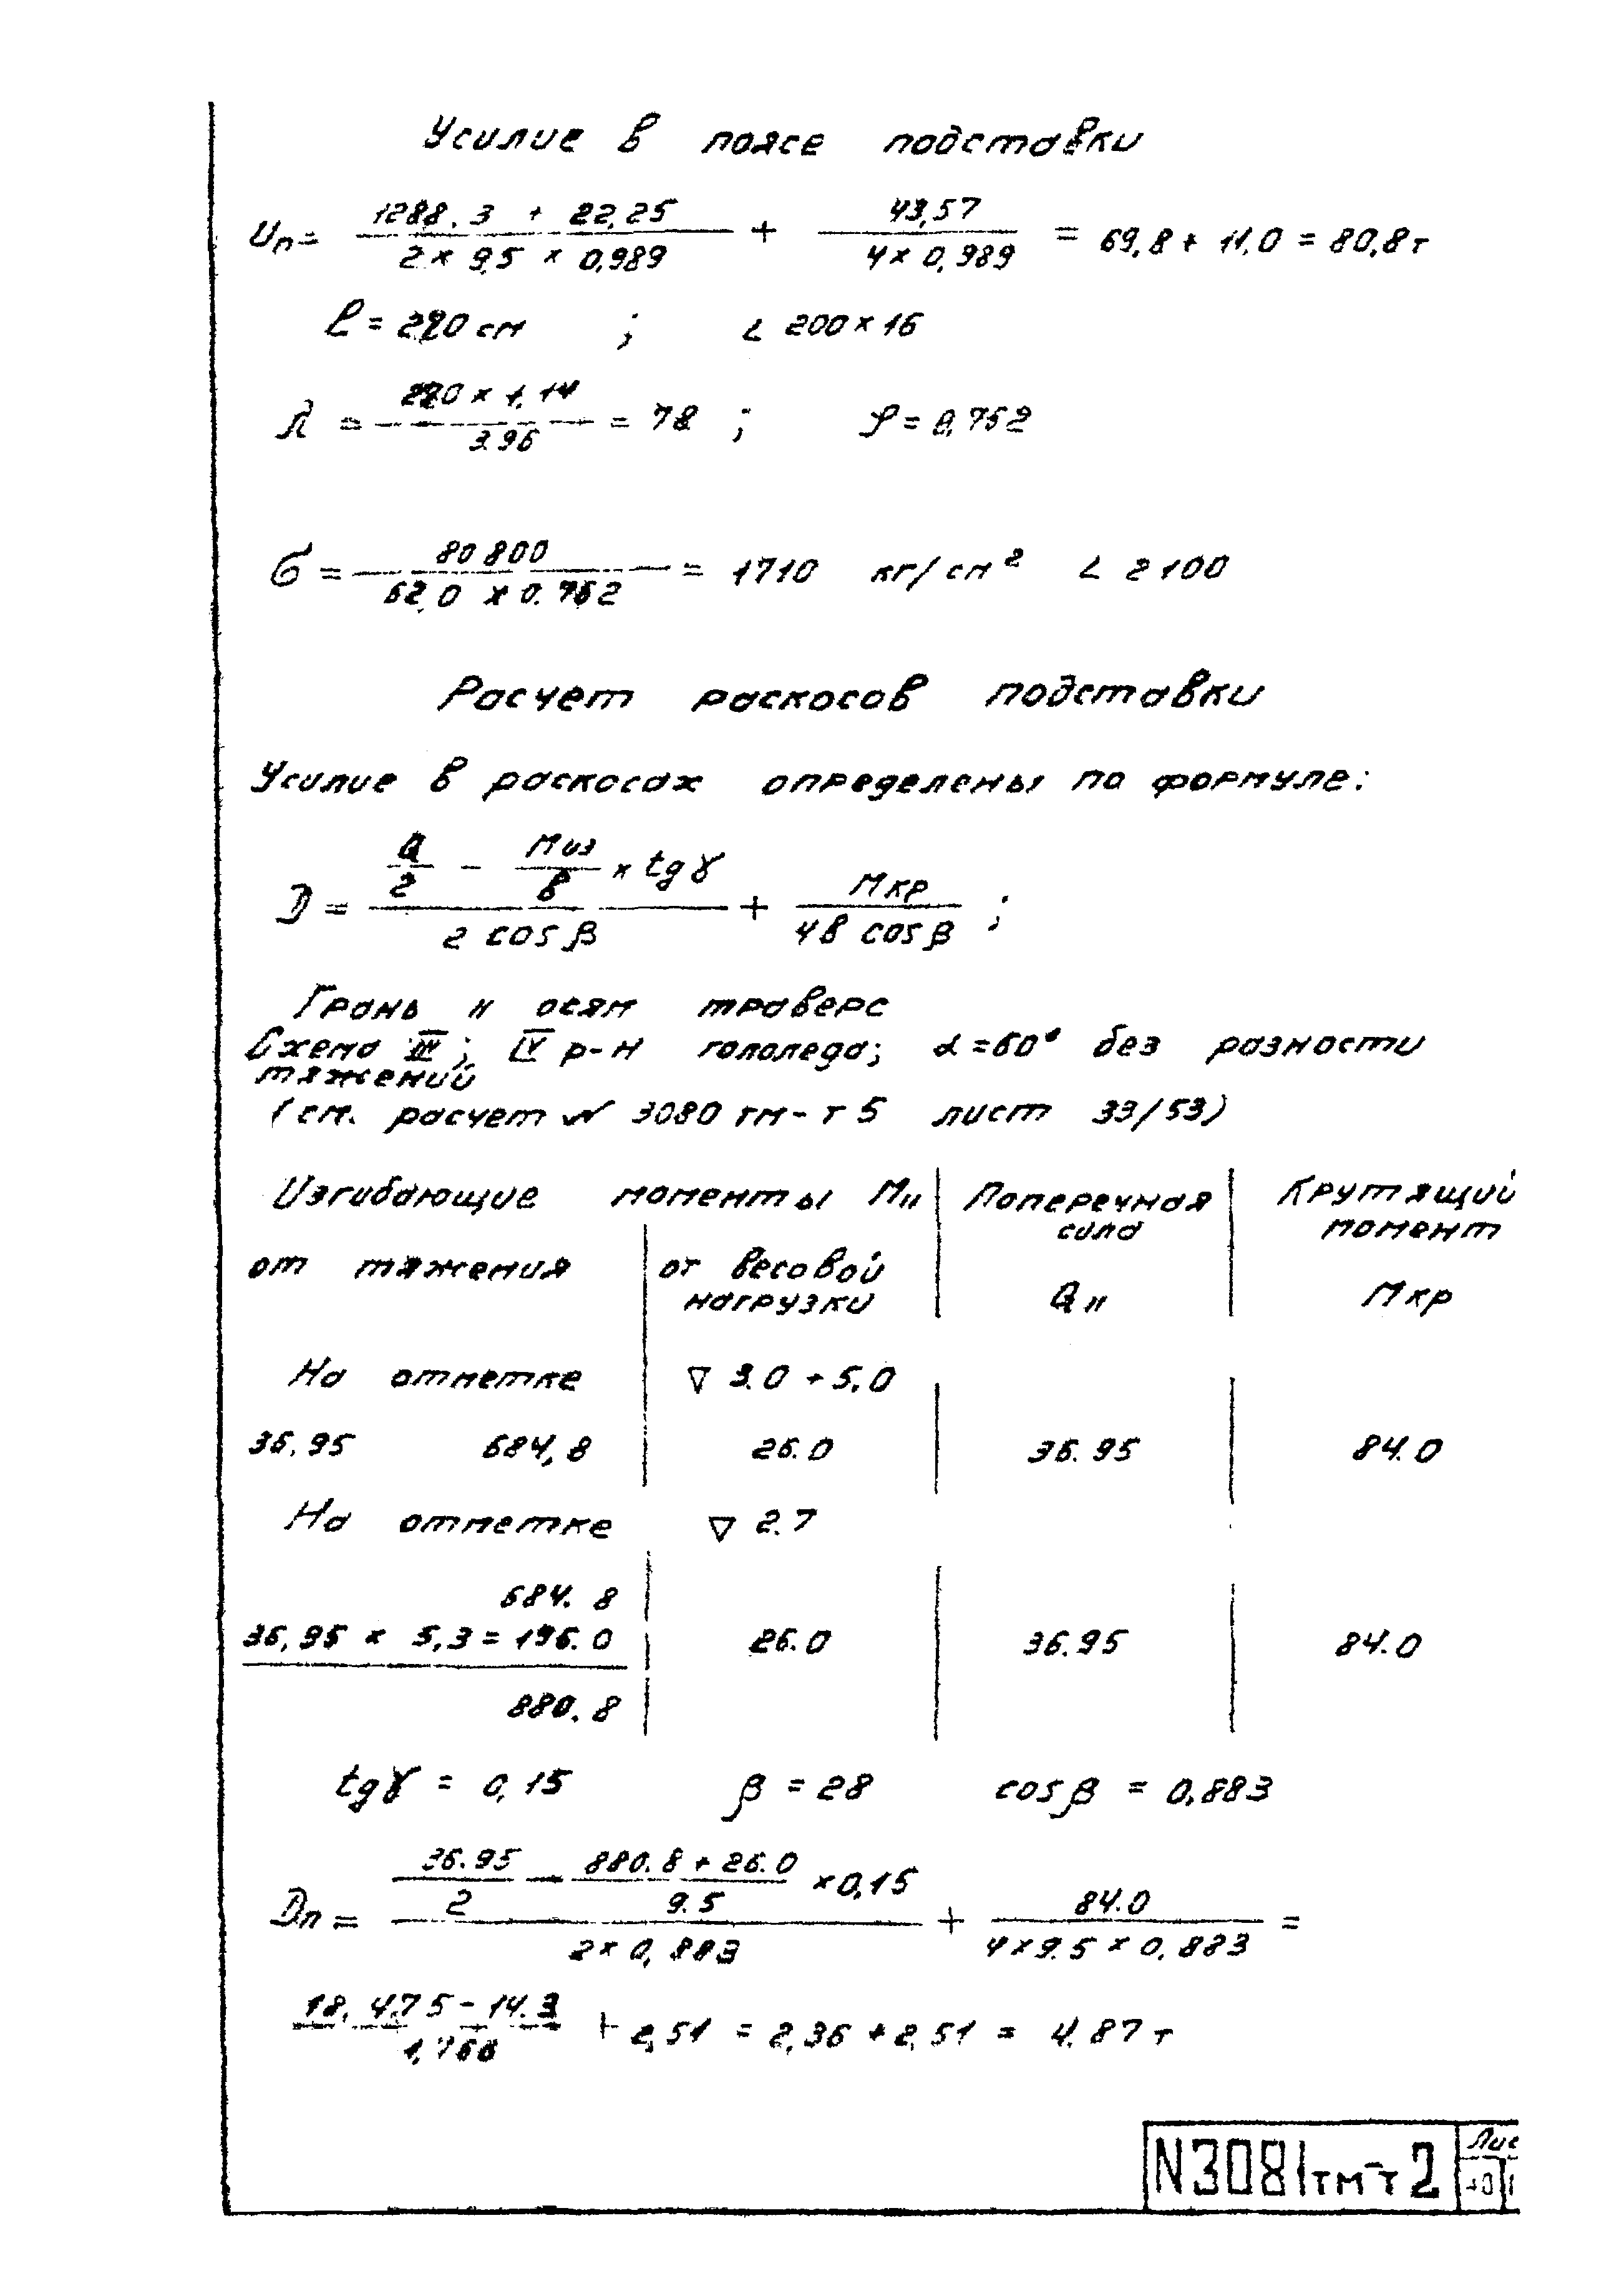 Усилие в поясе подставки
Uп = (1288.3 + 22,25) / (2 × 9,5 × 0,989) + 43,57 / (4 × 0,989) = 69,8 + 11,0 = 80,8 т
ℓ = 220 см ; ∟ 200 × 16
λ = (220 × 1,14) / 3.96 = 78 ; φ = 0,752
σ = 80 800 / (62,0 × 0.762) = 1710 кг/см² < 2100
Расчет раскосов подставки
Усилие в раскосах определены по формуле:
D = (Q/2 − Mиз/в × tg γ) / (2 cos β) + Mкр / (4в cos β) ;
Грань II осям траверс
Схема III; IV р-н гололеда; α = 60° без разности
тяжений
(см. расчет N 3080 тм-т 5 лист 33/53)
Изгибающие моменты MII | Поперечная сила QII | Крутящий момент Mкр
от тяжения | от весовой нагрузки
На отметке ▽ 3.0 ÷ 5,0
36,95 684,8 | 26.0 | 36.95 | 84.0
На отметке ▽ 2.7
684.8
36,95 × 5,3 = 196.0 | 26.0 | 36.95 | 84.0
880.8
tg γ = 0,15 β = 28 cos β = 0,883
Dп = (36.95/2 − (880.8 + 26.0)/9.5 × 0,15) / (2 × 0,883) + 84.0 / (4 × 9.5 × 0,883) =
(18,475 − 14.3) / 1,766 + 2,51 = 2,36 + 2,51 = 4.87 т
N3081тм-т2